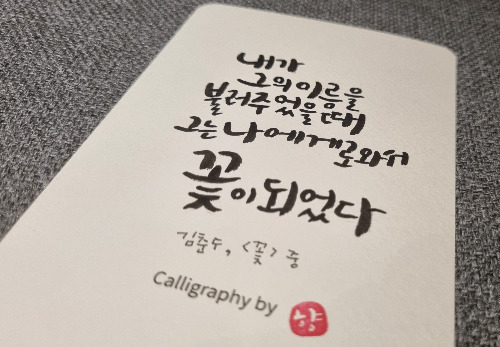 내가
그의 이름을
불러주었을 때
그는 나에게로 와서
꽃이 되었다
김춘수, <꽃> 중
Calligraphy by 향